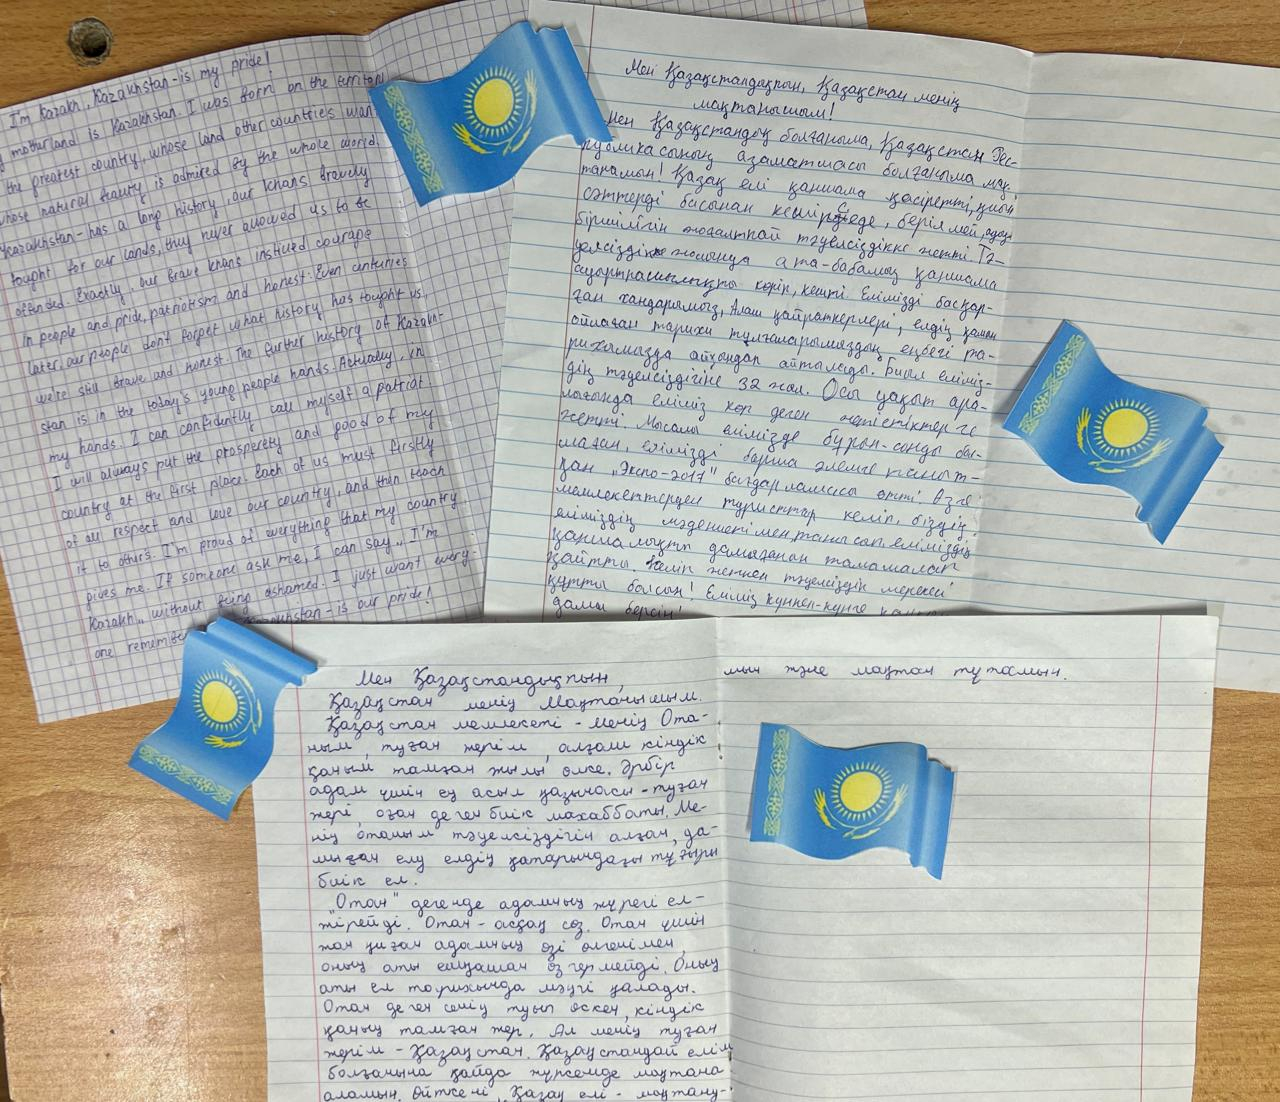 I'm Kazakh, Kazakhstan - is my pride!
motherland is Kazakhstan. I was born on the territory
the greatest country, whose land other countries want
whose natural beauty is admired by the whole world.
Kazakhstan - has a long history, our khans bravely
fought for our lands, they never allowed us to be
offended. Exactly, our brave khans insticed courage
in people and pride, patriotism and honest. Even centuries
later, our people don't forget what history has tought us,
we're still brave and honest. The further history of Kazakh-
stan is in the today's young people hands. Actually, in
my hands. I can confidently call myself a patriot
I will always put the prosperety and good of my
country at the first place. Each of us must firstly
of all respect and love our country, and then teach
it to others. I'm proud of everything that my country
gives me. If someone ask me, I can say „I'm
Kazakh„ without being ashamed. I just want every-
one remember Kazakhstan - is our pride!
Мен Қазақстандықпын, Қазақстан менің
мақтанышым!
Мен Қазақстандық болғаныма, Қазақстан Рес-
публикасының азаматшасы болғаныма мақ-
танамын! Қазақ елі қаншама қасіретті, қиын
сәттерді басынан кешірседе, берілмей,
біршілігін жоғалтпай тәуелсіздікке жетті. Тә-
уелсіздік жолында ата-бабамыз қаншама
ауыртпашылықты көріп, кешті. Елімізді басқар-
ған хандарымыз, Алаш қайраткерлері, елдің қамын
ойлаған тарихи тұлғаларымыздың еңбегі та-
рихымызда айқындап айтылады. Биыл еліміз-
дің тәуелсіздігіне 32 жыл. Осы уақыт ара-
лығында еліміз көп деген жетістіктерге
жетті. Мысалы елімізде бұрын-соңды бол-
маған, елімізді барша әлемге таныт-
қан „Экспо-2017" бағдарламасы өтті. Өзге
мемлекеттерден туристтар келіп, біздің
еліміздің мәдениетімен танысып, еліміздің
қаншалықты дамығанын тамашалап
қайтты. Келіп жеткен тәуелсіздік мерекесі
құтты болсын! Еліміз күннен-күнге
дами берсін!
Мен Қазақстандықпын,
Қазақстан менің Мақтанышым.
Қазақстан мемлекеті - менің Ота-
ным, туған жерім, алғаш кіндік
қаным тамған жылы өлке. Әрбір
адам үшін ең асыл қазынасы - туған
жері, оған деген биік махаббаты. Ме-
нің отаным тәуелсіздігін алған, да-
мыған елу елдің қатарындағы тұғыры
биік ел.
„Отан" дегенде адамның жүрегі ел-
жірейді. Отан - асқақ сөз. Отан үшін
жан қиған адамның өзі өлгенімен,
оның аты ешқашан өзгермейді. Оның
аты ел тарихында мәңгі қалады.
Отан деген сенің туып өскен, кіндік
қаның тамған жер. Ал менің туған
жерім - Қазақстан. Қазақстандай елім
болғанына қайда жүрсемде мақтана
аламын. Өйткені, Қазақ елі - мақтану-
мын және мақтан тұтамын.